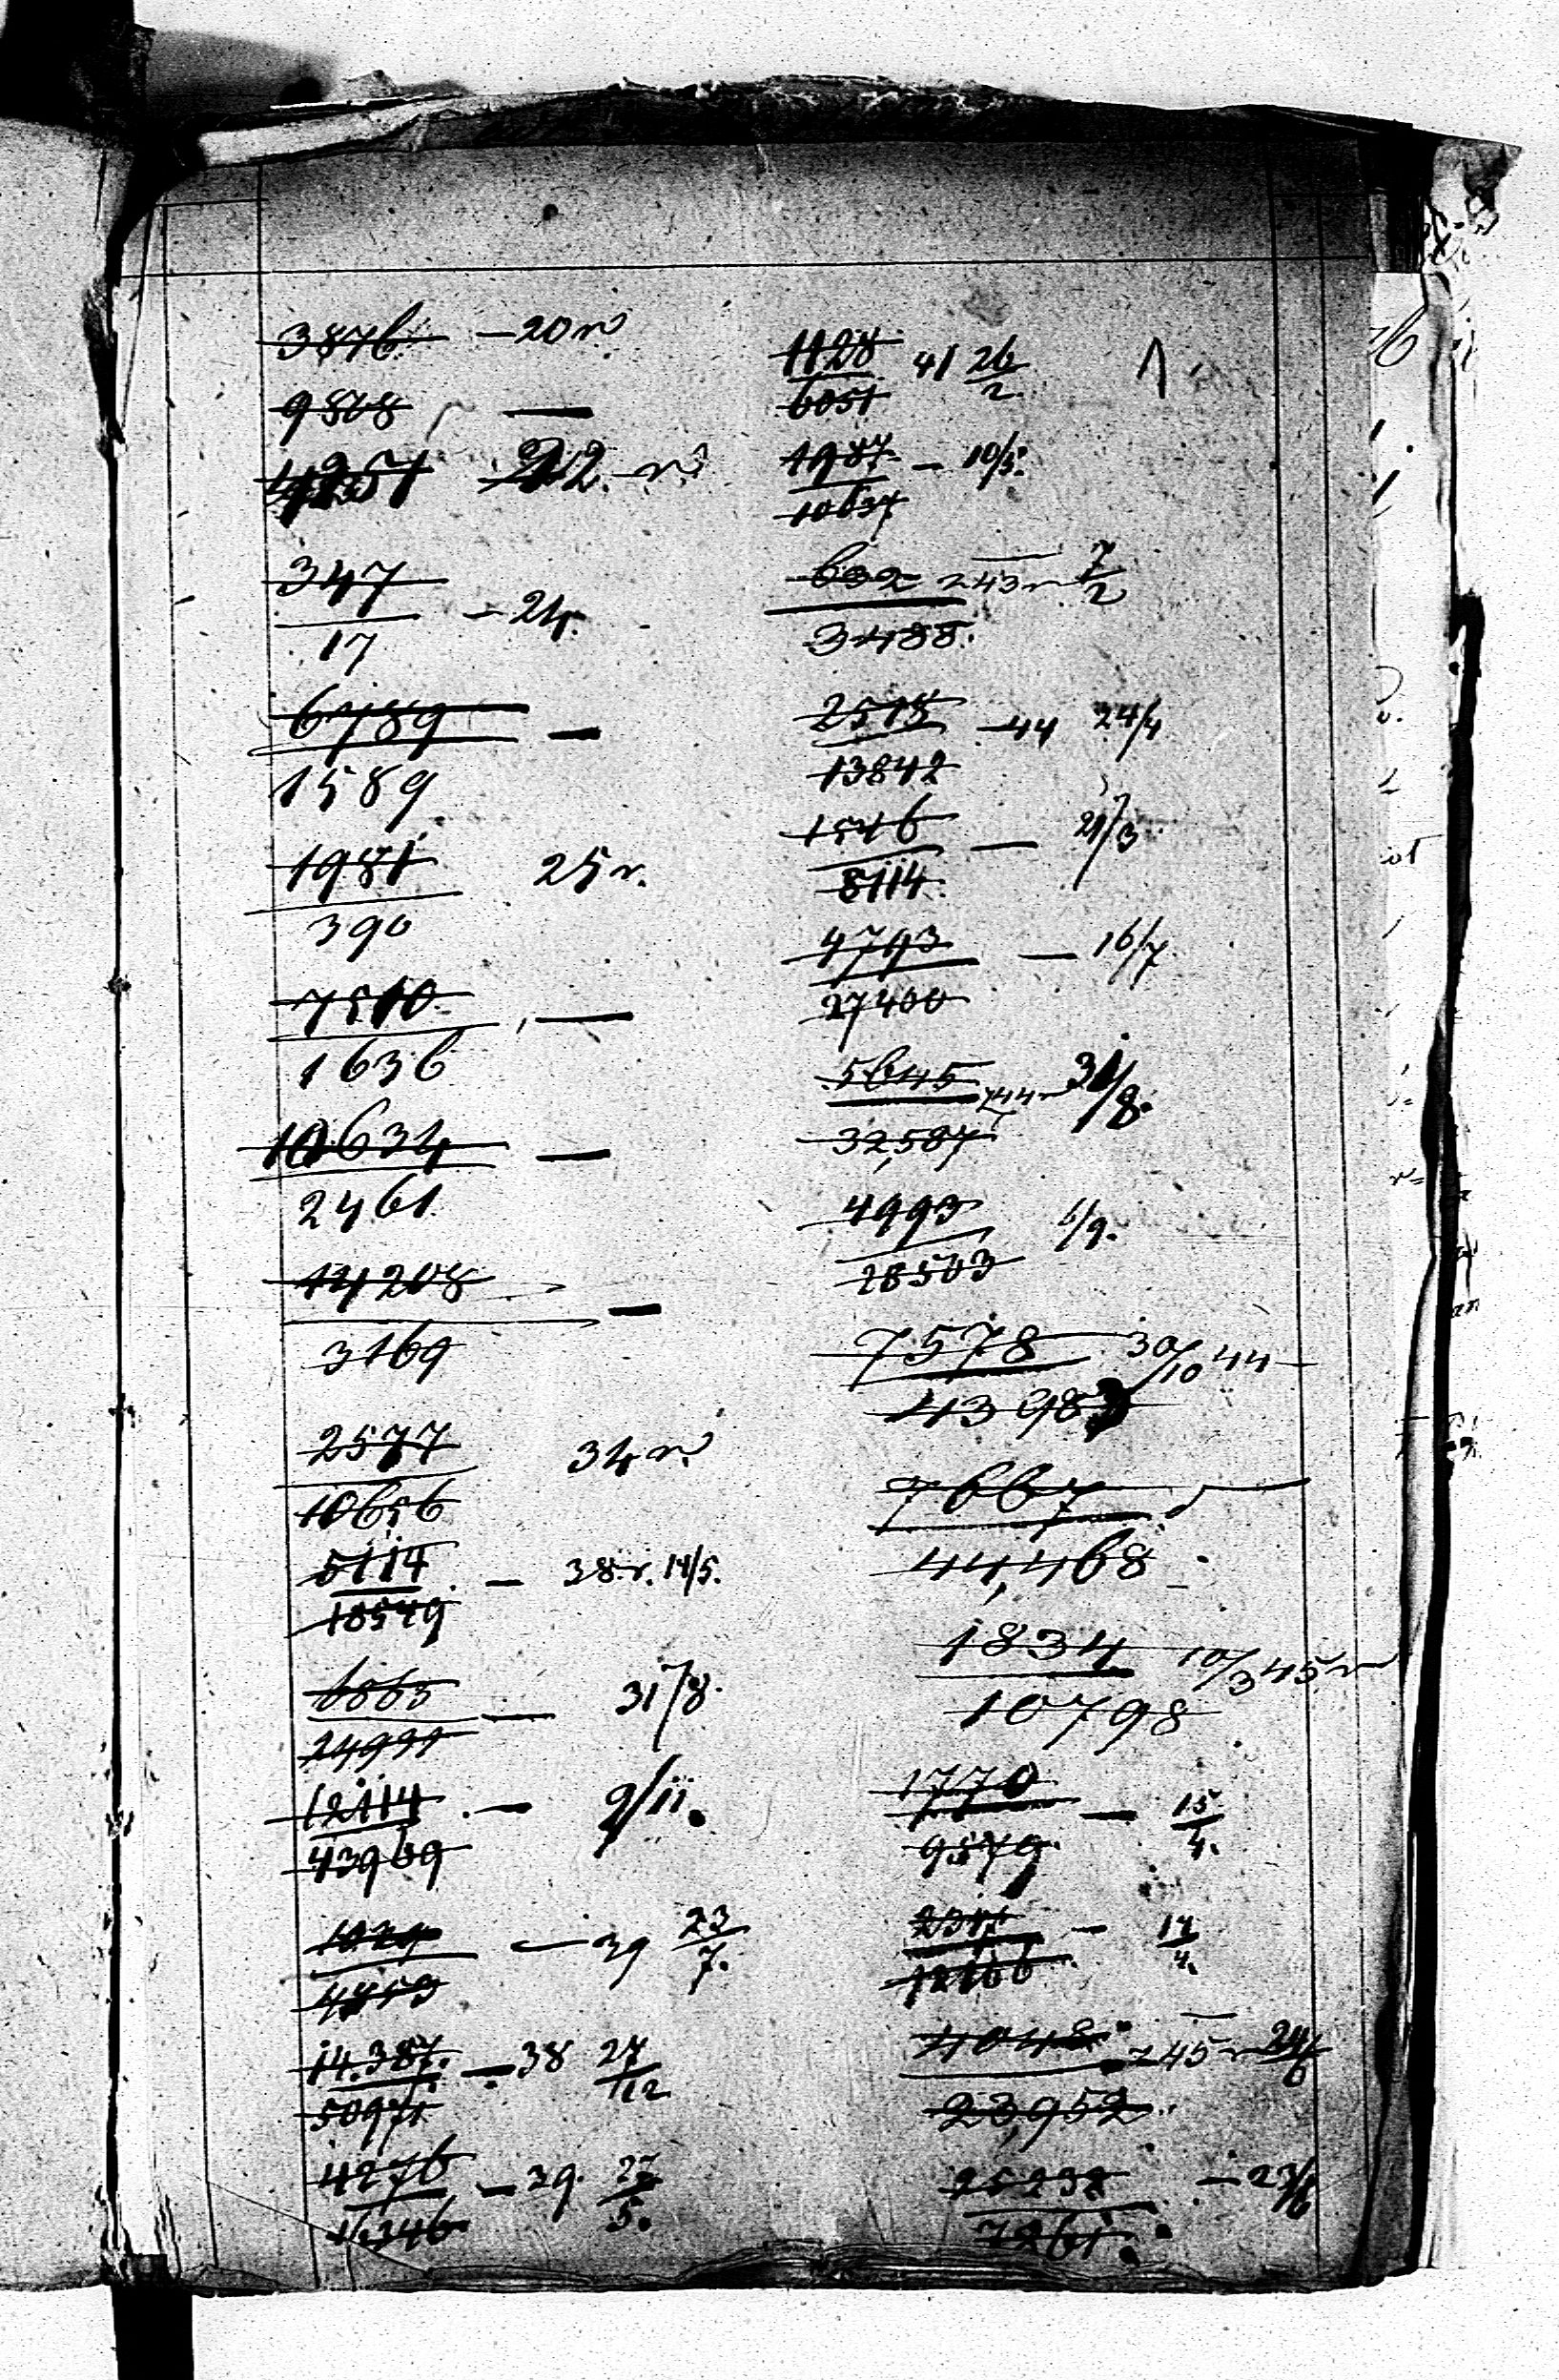 3876 — 20 г
9868 —
347 — 24.
17
6789 —
1589
1981 25 г.
390
7510 —
1636
10634 —
2461
14208 —
3169
2577 34 г
10656
5114 — 38 г. 14/5.
18549
6865 — 31/8.
24991
12114 — 9/11.
43969
1029 — 39 23/7.
4853
14.387. — 38 27/12
50971
4276 — 39. 27/5.
16346
1128 41 26/2.
6051
1987 — 10/5.
10637
632 243 г 7/2
3488.
2518 — 44 24/4
13842
1546 — 21/3
8114
4793 — 16/7.
27400
5645 244 г 31/8.
32,587
4993 6/9.
28503
7578 30/10 44
43983
7667
44,468
1834 10/3 45 г
10798
1770 — 15/4.
9579
12166
4048 245 г
23,952
25232
7261.